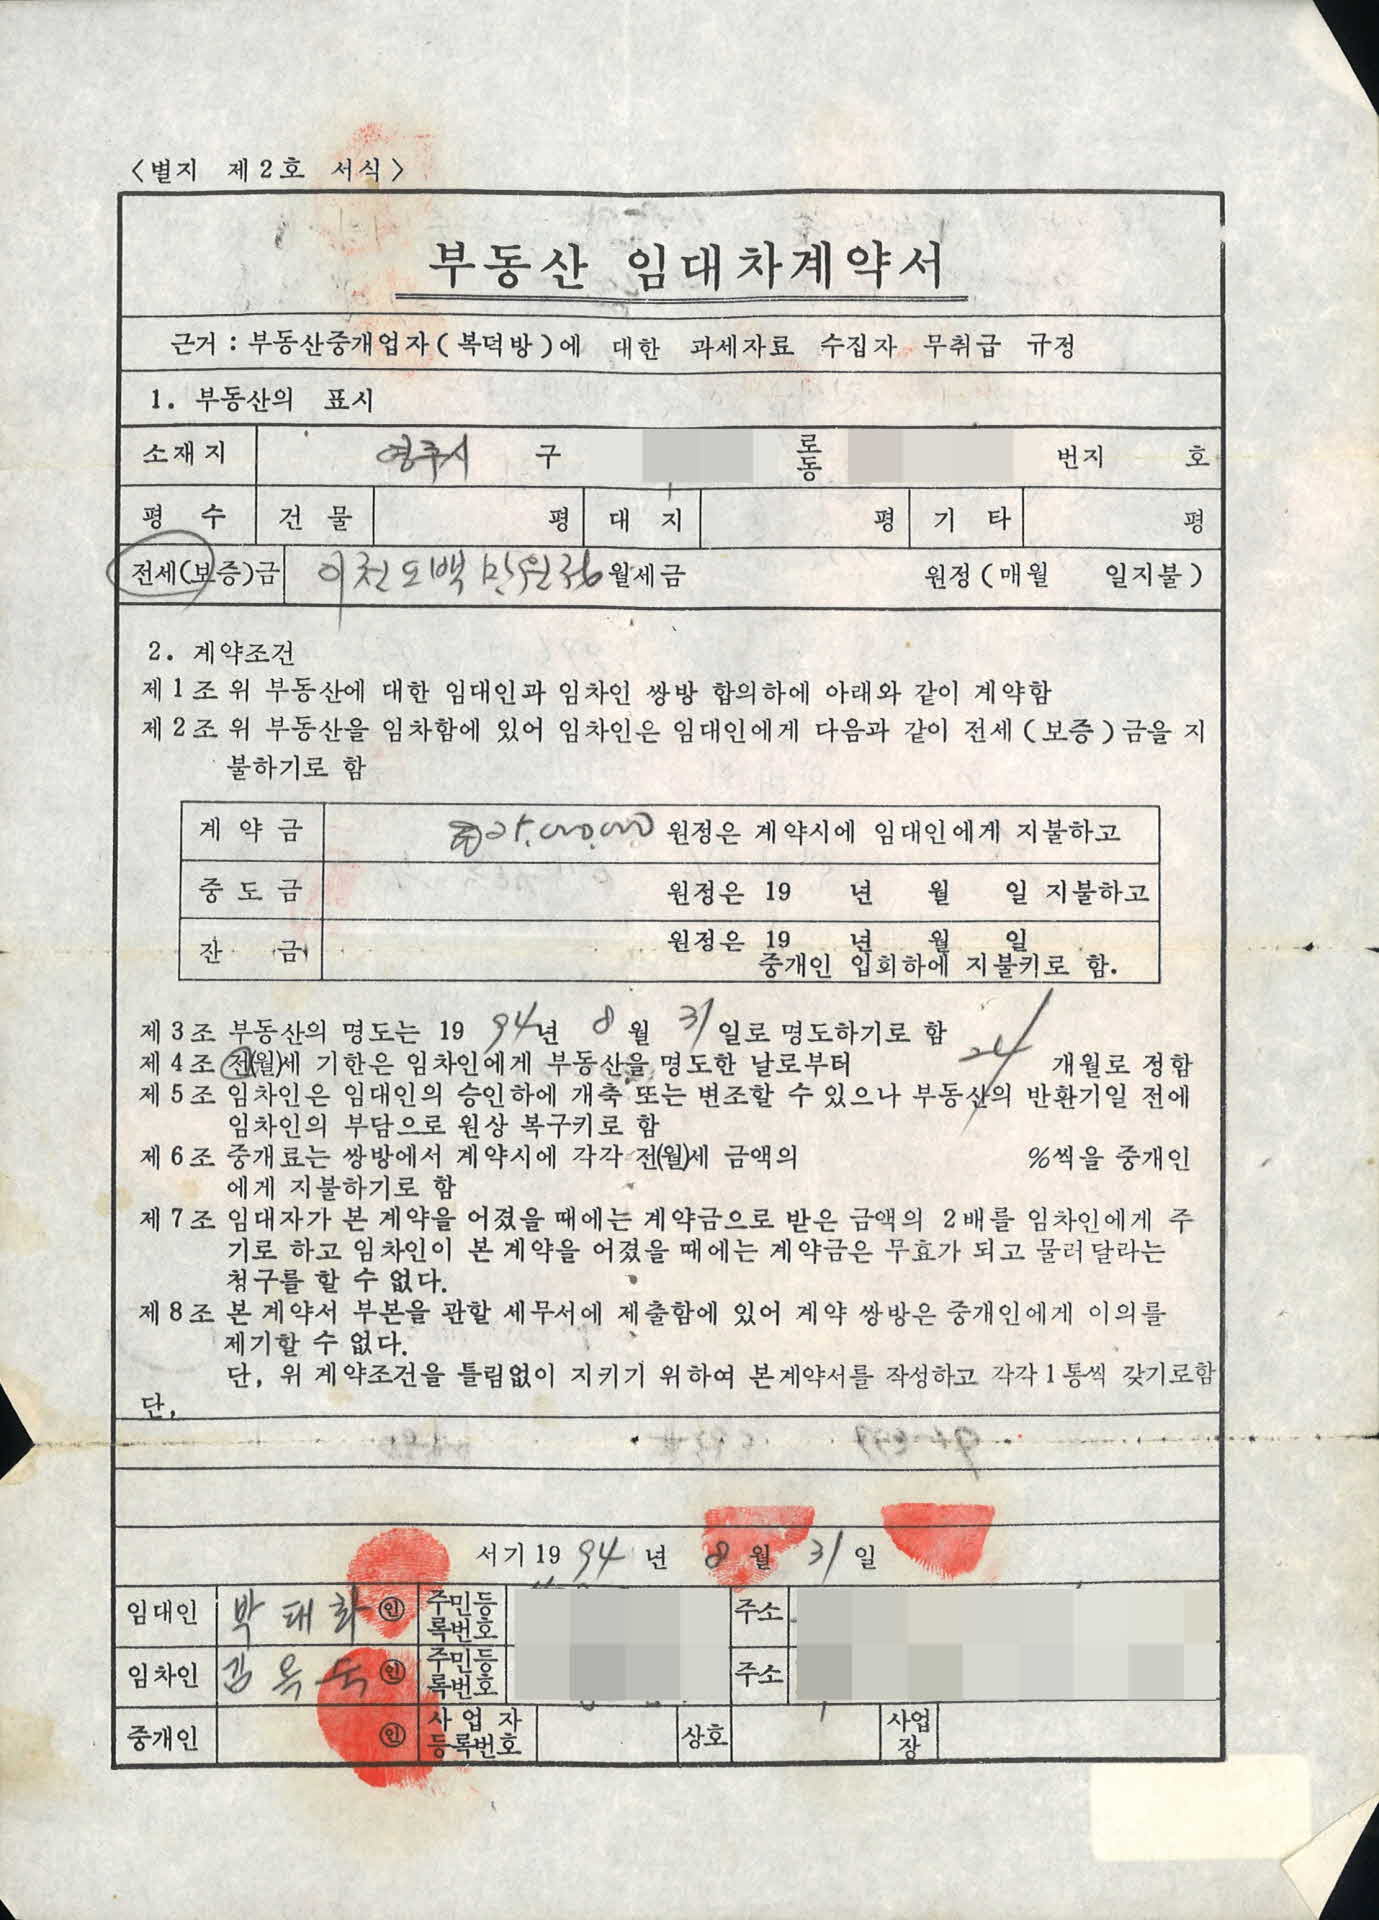 <별지 제2호 서식>
부동산 임대차계약서
근거 : 부동산중개업자(복덕방)에 대한 과세자료 수집자 무취급 규정
1. 부동산의 표시
소재지 영주시 구 로동 번지 호
평수 건물 평 대지 평 기타 평
전세(보증)금 이천오백만원정 월세금 원정(매월 일지불)
2. 계약조건
제1조 위 부동산에 대한 임대인과 임차인 쌍방 합의하에 아래와 같이 계약함
제2조 위 부동산을 임차함에 있어 임차인은 임대인에게 다음과 같이 전세(보증)금을 지
불하기로 함
계약금 25,000,000 원정은 계약시에 임대인에게 지불하고
중도금 원정은 19 년 월 일 지불하고
잔금 원정은 19 년 월 일
중개인 입회하에 지불키로 함.
제3조 부동산의 명도는 19 94년 8월 31일로 명도하기로 함
제4조 전(월)세 기한은 임차인에게 부동산을 명도한 날로부터 24 개월로 정함
제5조 임차인은 임대인의 승인하에 개축 또는 변조할 수 있으나 부동산의 반환기일 전에
임차인의 부담으로 원상 복구키로 함
제6조 중개료는 쌍방에서 계약시에 각각 전(월)세 금액의 %씩을 중개인
에게 지불하기로 함
제7조 임대자가 본 계약을 어겼을 때에는 계약금으로 받은 금액의 2배를 임차인에게 주
기로 하고 임차인이 본 계약을 어겼을 때에는 계약금은 무효가 되고 물러 달라는
청구를 할 수 없다.
제8조 본 계약서 부본을 관할 세무서에 제출함에 있어 계약 쌍방은 중개인에게 이의를
제기할 수 없다.
단, 위 계약조건을 틀림없이 지키기 위하여 본계약서를 작성하고 각각 1통씩 갖기로함
단,
서기 19 94년 8월 31일
임대인 박태화 ㊞ 주민등록번호 주소
임차인 김옥숙 ㊞ 주민등록번호 주소
중개인 ㊞ 사업자등록번호 상호 사업장